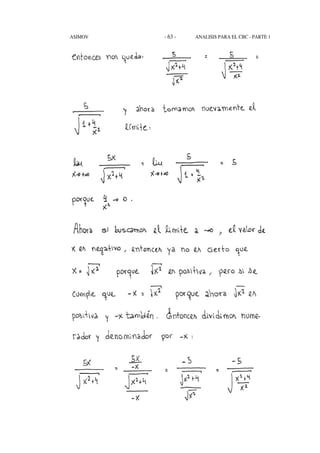 ASIMOV - 63 - ANALISIS PARA EL CBC - PARTE 1
entonces nos queda: 5 / (√(x²+4) / √x²) = 5 / √((x²+4) / x²) =
5 / √(1 + 4/x²) y ahora tomamos nuevamente el
límite:
lim x→+∞ 5x / √(x²+4) = lim x→+∞ 5 / √(1 + 4/x²) = 5
porque 4/x² → 0.
Ahora si buscamos el límite a -∞, el valor de
x es negativo, entonces ya no es cierto que
x = √x² porque √x² es positiva, pero si se
cumple que -x = √x² porque ahora √x² es
positiva y -x también. Entonces dividimos nume-
rador y denominador por -x:
5x / √(x²+4) = (5x / -x) / (√(x²+4) / -x) = -5 / (√(x²+4) / √x²) = -5 / √((x²+4) / x²)